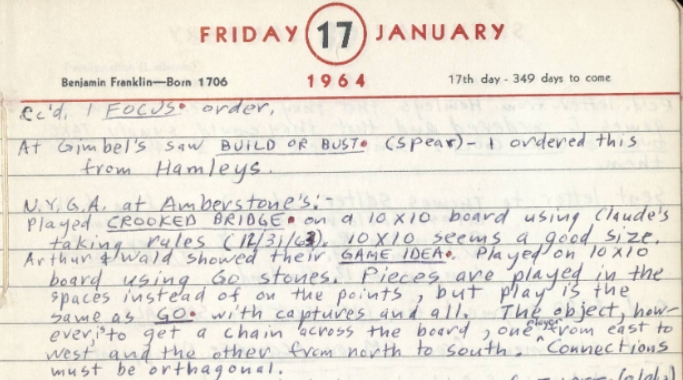 FRIDAY 17 JANUARY
Benjamin Franklin—Born 1706 1964 17th day - 349 days to come
Rec'd. 1 FOCUS order.
At Gimbel's saw BUILD OR BUST (Spear) - I ordered this
from Hamleys.
N.Y.G.A. at Amberstone's:
Played CROOKED BRIDGE on a 10x10 board using Claude's
taking rules (12/31/63). 10x10 seems a good size.
Arthur & Wald showed their GAME IDEA. Played on 10x10
board using Go stones. Pieces are played in the
spaces instead of on the points, but play is the
same as GO with captures and all. The object, how-
ever, is to get a chain across the board, one player from east to
west and the other from north to south. Connections
must be orthogonal.